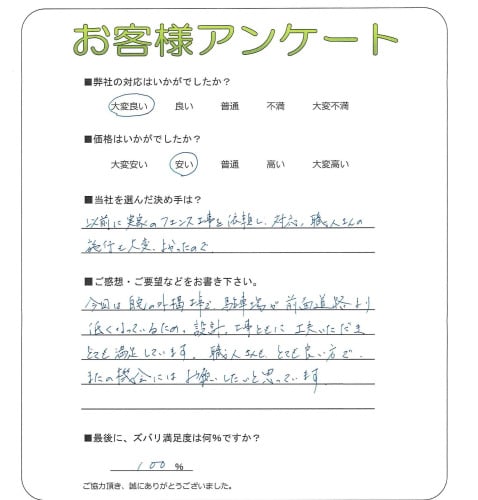 お客様アンケート
■弊社の対応はいかがでしたか？
大変良い 良い 普通 不満 大変不満
■価格はいかがでしたか？
大変安い 安い 普通 高い 大変高い
■当社を選んだ決め手は？
以前に実家のフェンス工事を依頼し、対応、職人さんの
施行も大変よかったので
■ご感想・ご要望などをお書き下さい。
今回は自宅の外構工事で、駐車場が前面道路より
低くなっているため、設計、工事ともに工夫いただき
とても満足しています。職人さんも、とても良い方で、
またの機会にはお願いしたいと思っています
■最後に、ズバリ満足度は何%ですか？
100 %
ご協力頂き、誠にありがとうございました。